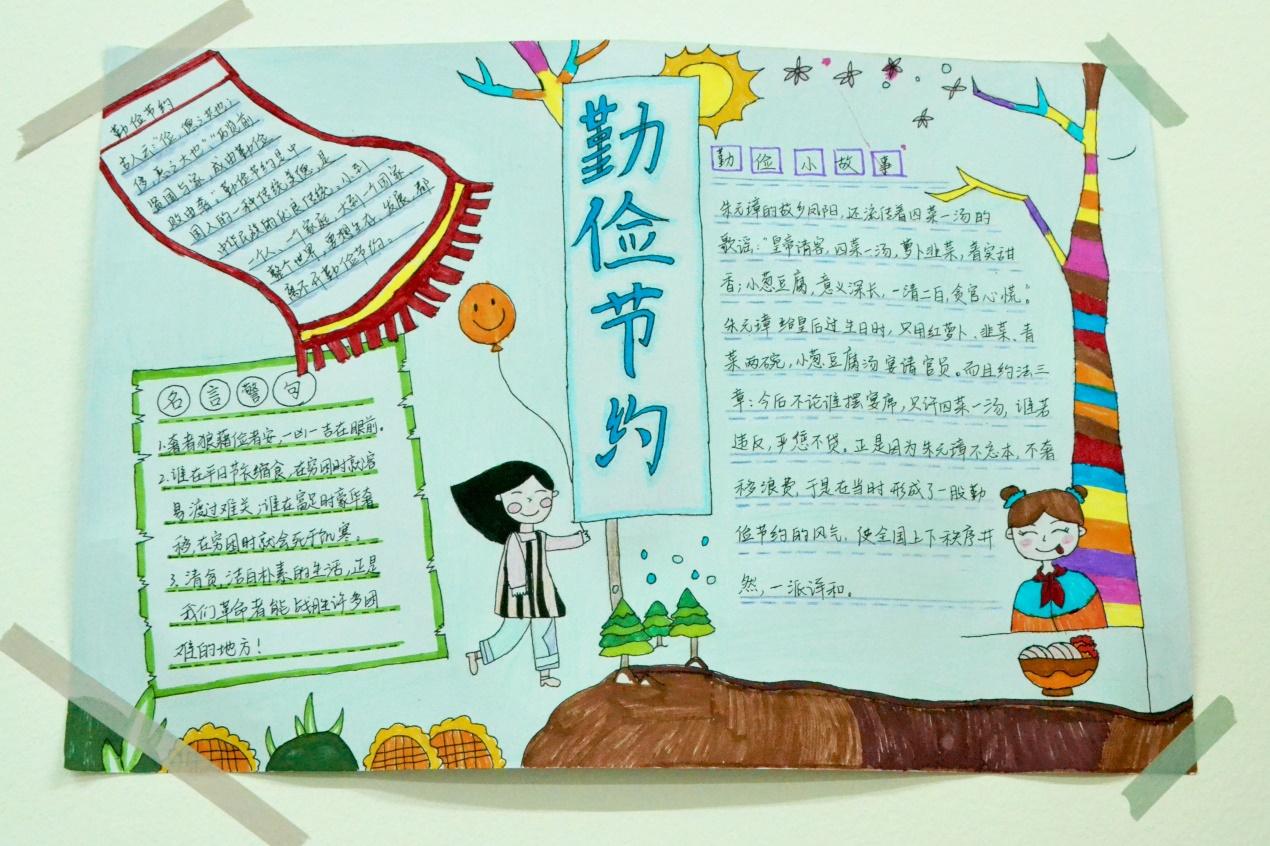 勤俭节约
古人云"俭,德之共也;
侈,恶之大也""历览前
贤国与家,成由勤俭
败由奢。"勤俭节约是中
国人的一种传统美德,是
中华民族的优良传统。小到
一个人、一个家庭,大到一个国家、
整个世界,要想生存、发展,都
离不开勤俭节约。
名言警句
1.奢者狼藉俭者安,一凶一吉在眼前。
2.谁在平日节衣缩食,在穷困时就容
易渡过难关,谁在富足时豪华奢
移,在穷困时就会死于饥寒。
3.清贫,洁白朴素的生活,正是
我们革命者能战胜许多困
难的地方!
勤俭节约
勤俭小故事
朱元璋的故乡凤阳,还流传着四菜一汤的
歌谣:"皇帝请客,四菜一汤,萝卜韭菜,着实甜
香;小葱豆腐,意义深长,一清二白,贪官心慌。"
朱元璋给皇后过生日时,只用红萝卜、韭菜、青
菜两碗,小葱豆腐汤宴请官员。而且约法三
章:今后不论谁摆宴席,只许四菜一汤,谁若
违反,严惩不贷。正是因为朱元璋不忘本,不奢
移浪费,于是在当时形成了一股勤
俭节约的风气,使全国上下秩序井
然,一派详和。